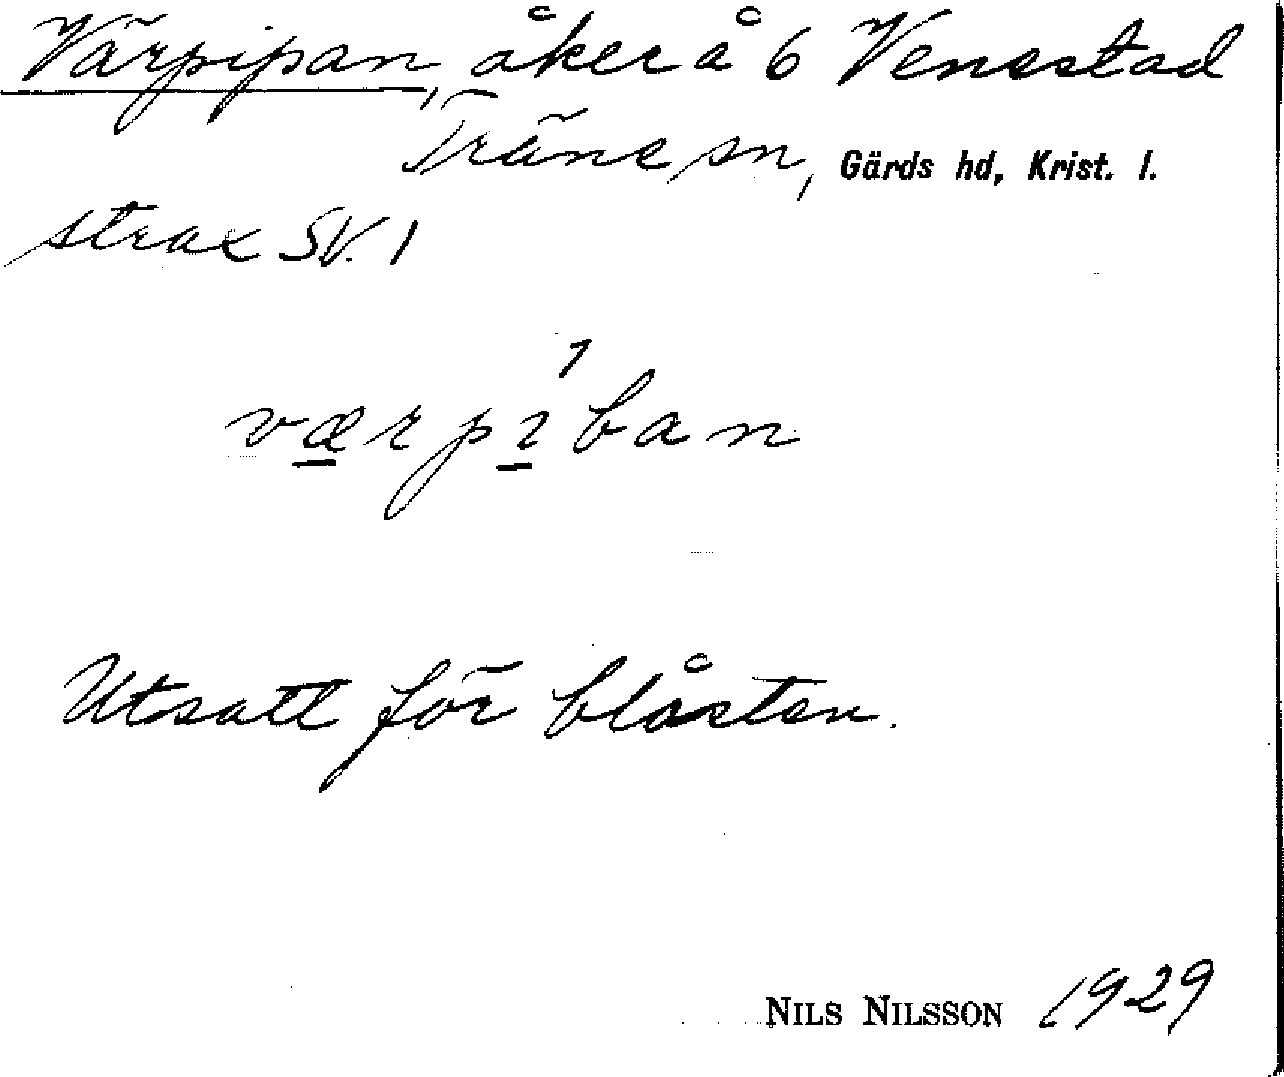 Värpipan, åker å 6 Venestad
Träne sn, Gärds hd, Krist. l.
strax SV. 1
værpi1ban
Utsatt för blåsten.
NILS NILSSON 1929